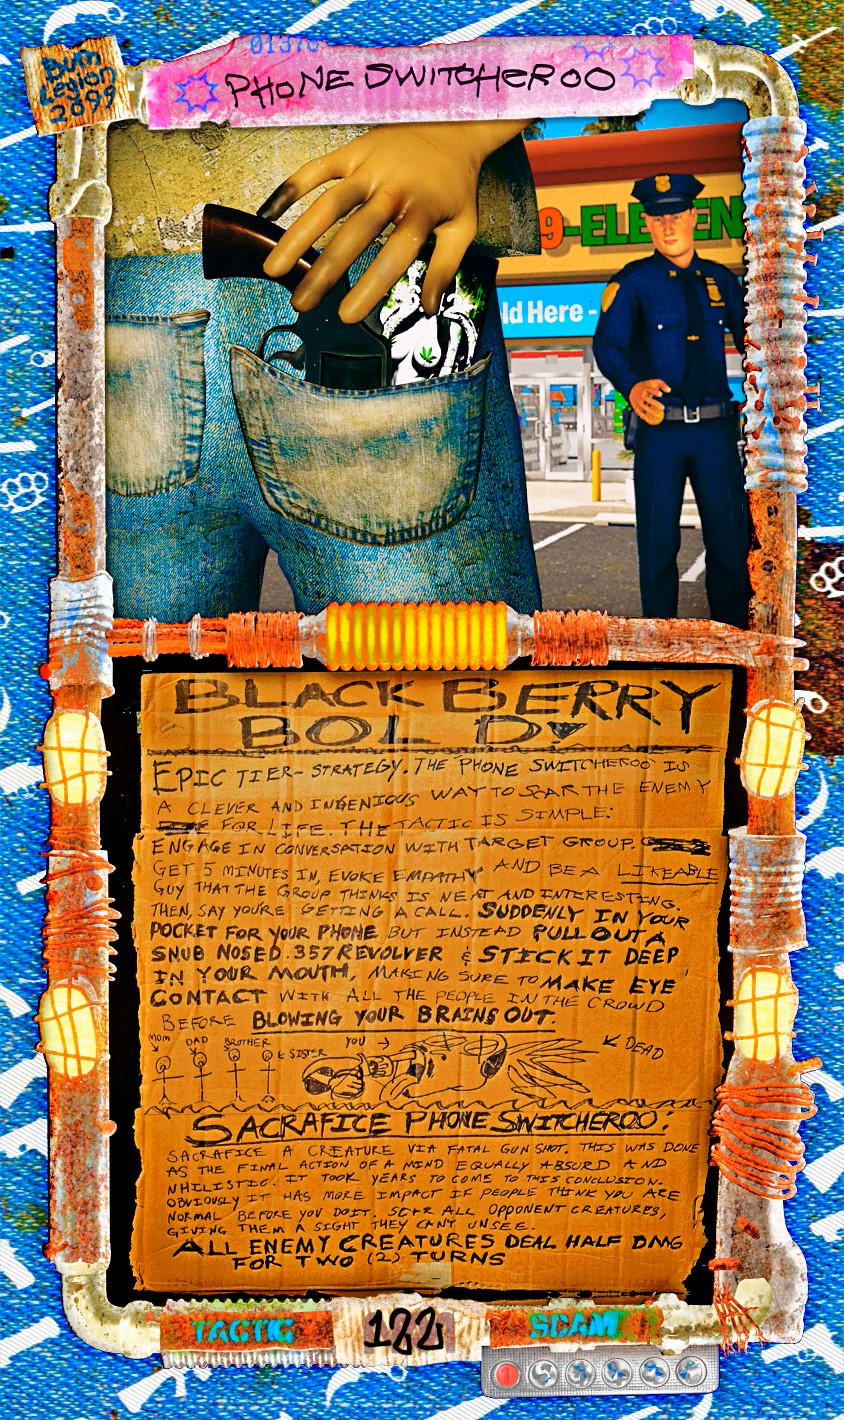 01376
Bum
Legion
2099
PHONE SWITCHEROO
9-ELEVEN
ld Here -
BLACK BERRY
BOLD
EPIC TIER- STRATEGY. THE PHONE SWITCHEROO IS
A CLEVER AND INGENIOUS WAY TO SCAR THE ENEMY
FOR LIFE. THE TACTIC IS SIMPLE:
ENGAGE IN CONVERSATION WITH TARGET GROUP.
GET 5 MINUTES IN, EVOKE EMPATHY AND BE A LIKEABLE
GUY THAT THE GROUP THINKS IS NEAT AND INTERESTING.
THEN, SAY YOU'RE GETTING A CALL. SUDDENLY IN YOUR
POCKET FOR YOUR PHONE BUT INSTEAD PULL OUT A
SNUB NOSED .357 REVOLVER & STICK IT DEEP
IN YOUR MOUTH, MAKING SURE TO MAKE EYE
CONTACT WITH ALL THE PEOPLE IN THE CROWD
BEFORE BLOWING YOUR BRAINS OUT.
MOM DAD BROTHER SISTER YOU DEAD
SACRAFICE PHONE SWITCHEROO:
SACRAFICE A CREATURE VIA FATAL GUNSHOT. THIS WAS DONE
AS THE FINAL ACTION OF A MIND EQUALLY ABSURD AND
NHILISTIC. IT TOOK YEARS TO COME TO THIS CONCLUSION.
OBVIOUSLY IT HAS MORE IMPACT IF PEOPLE THINK YOU ARE
NORMAL BEFORE YOU DO IT. SCAR ALL OPPONENT CREATURES,
GIVING THEM A SIGHT THEY CANT UNSEE.
ALL ENEMY CREATURES DEAL HALF DMG
FOR TWO (2) TURNS
TACTIC
122
SCAM